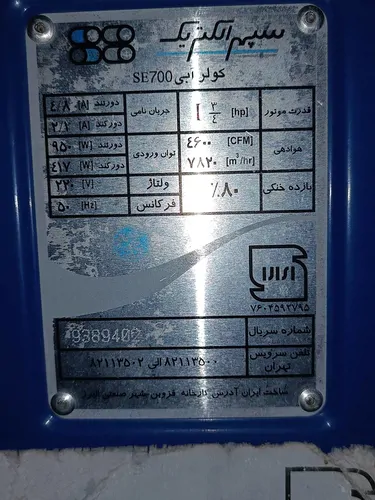 سپهر الکتریک
کولر آبی SE700
قدرت موتور [hp] ۳/۴ جریان نامی دورتند [A] ۴/۸
دورکند [A] ۲/۲
هوادهی [CFM] ۴۶۰۰ توان ورودی دورتند [W] ۹۵۰
[m³/hr] ۷۸۲۰ دورکند [W] ۴۱۷
بازده خنکی ٪۸۰ ولتاژ [V] ۲۲۰
فرکانس [Hz] ۵۰
۷۶۰۴۵۹۲۷۹۵
شماره سریال 9389402
تلفن سرویس تهران ۸۲۱۱۳۵۰۰ الی ۸۲۱۱۳۵۰۲
ساخت ایران آدرس کارخانه قزوین شهر صنعتی البرز